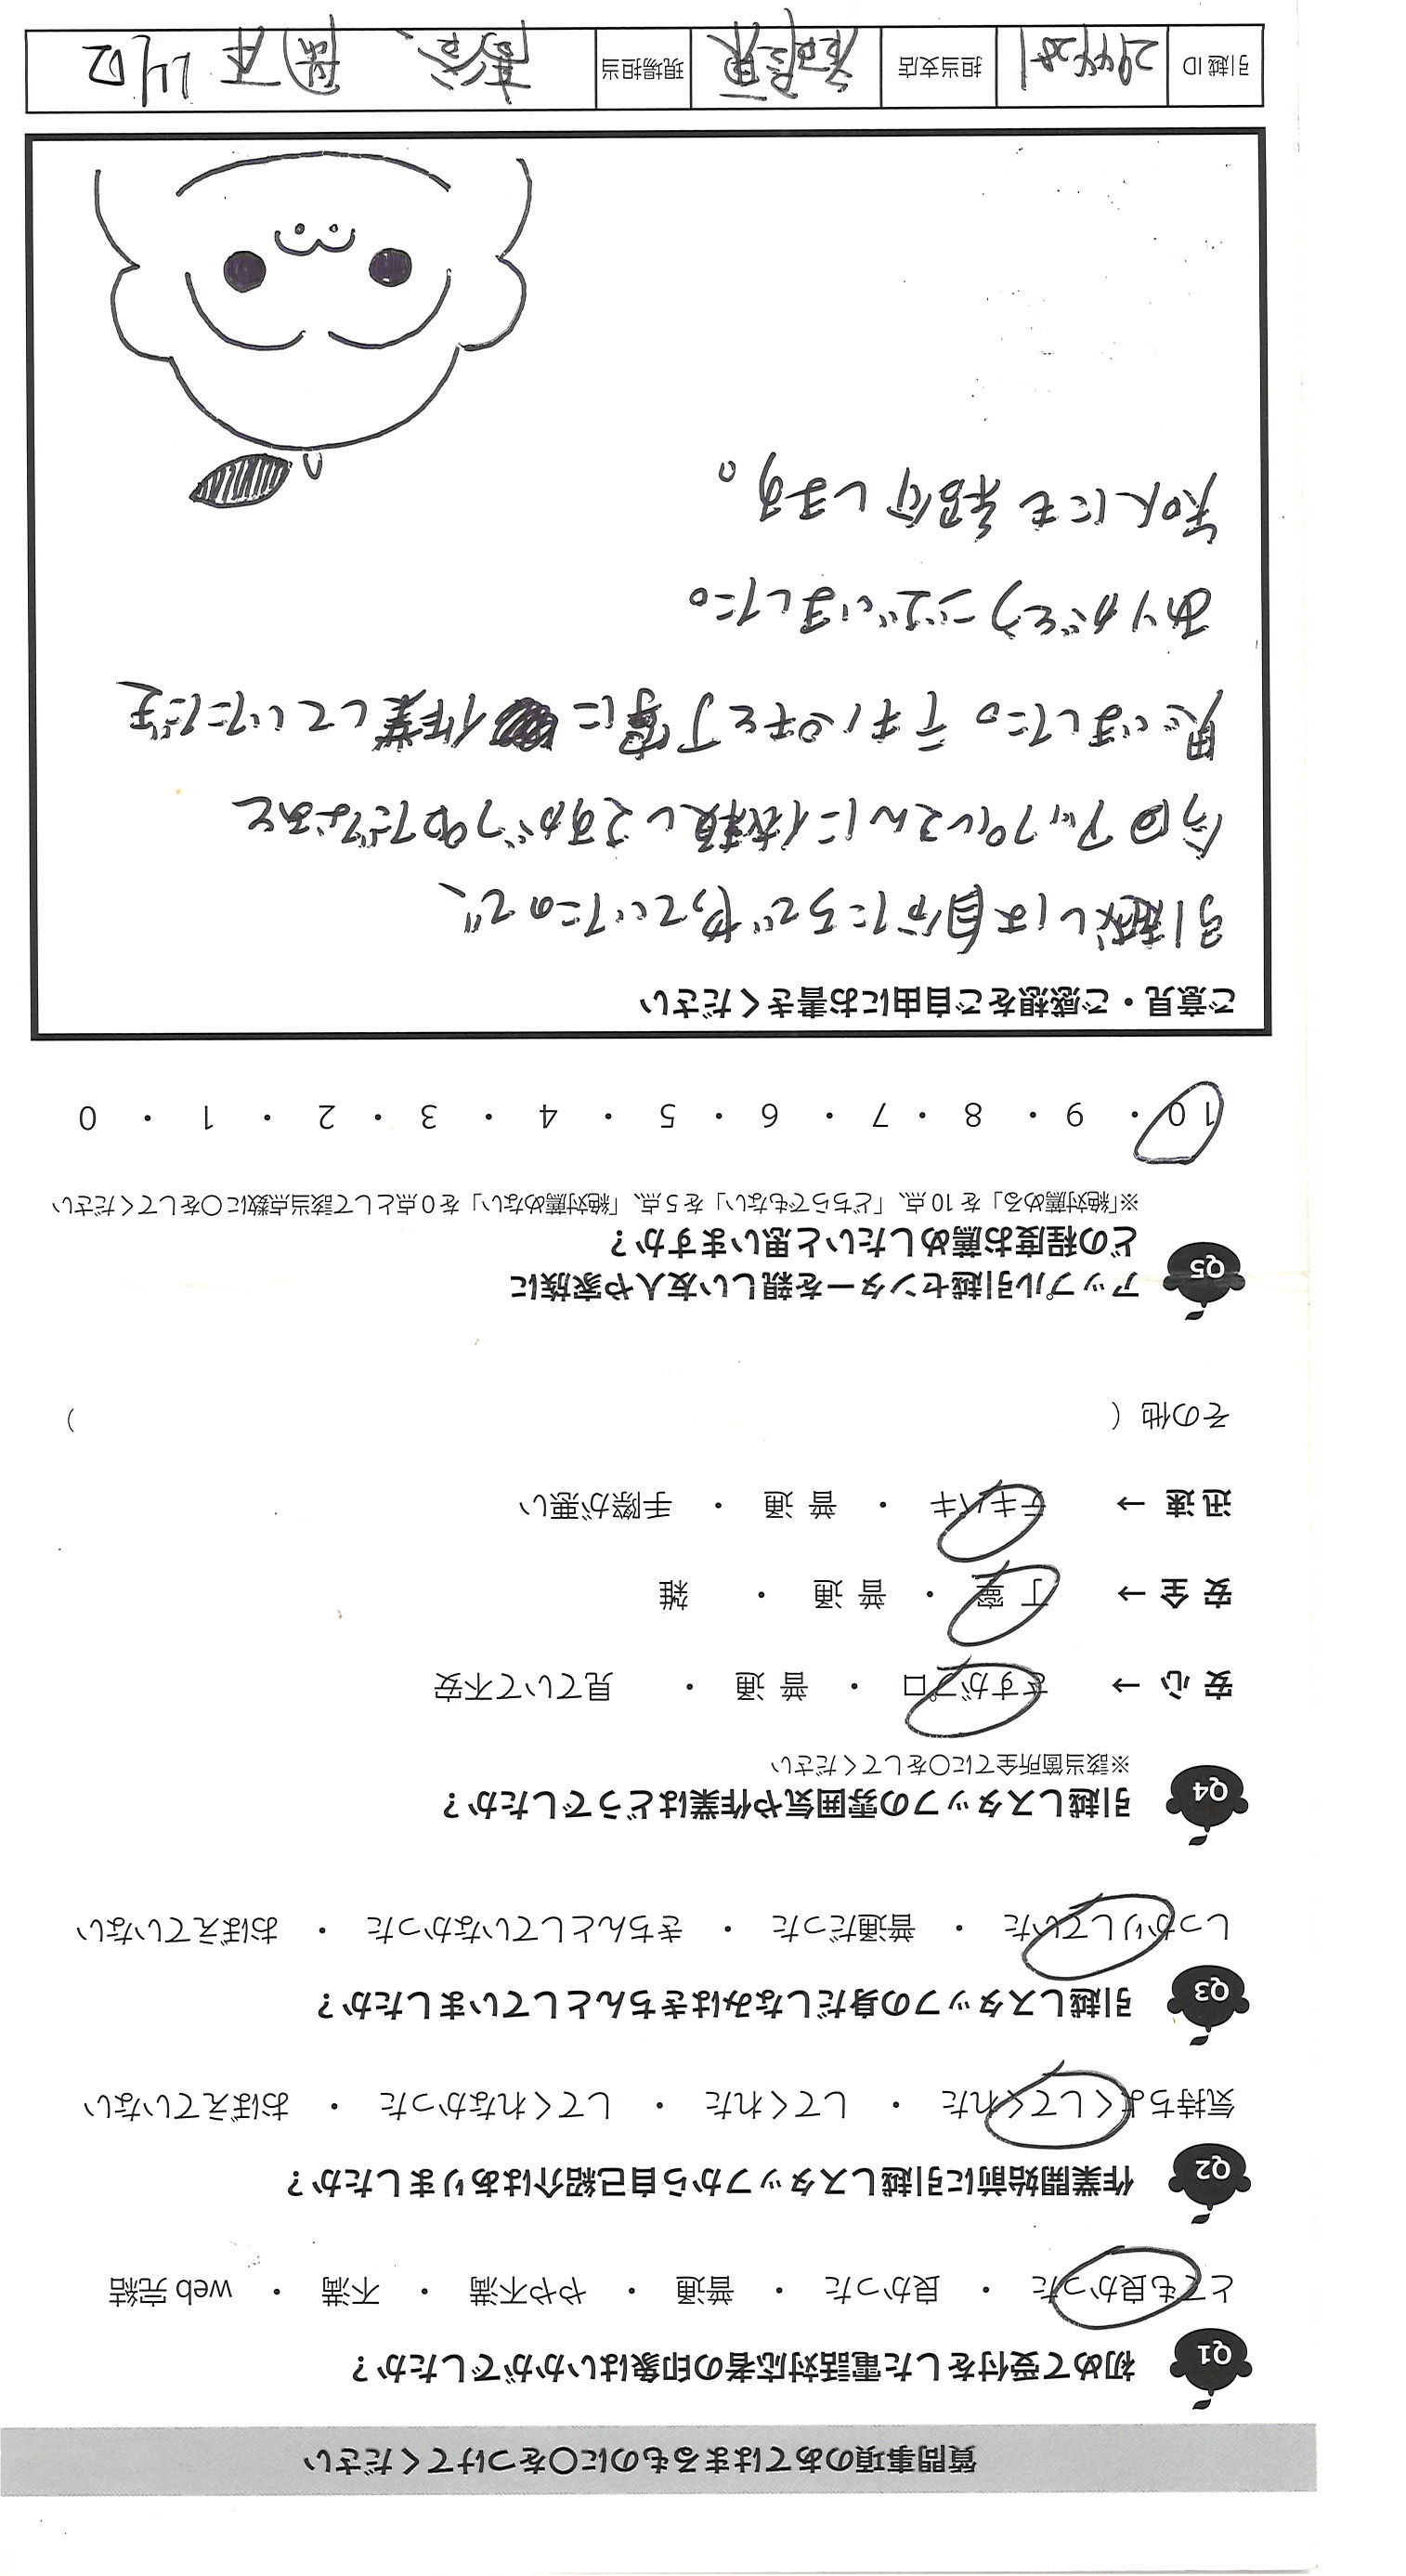 質問事項のあてはまるものに〇をつけてください
Q1 初めて受付をした電話対応者の印象はいかがでしたか？
とても良かった ・ 良かった ・ 普通 ・ やや不満 ・ 不満 ・ web 完結
Q2 作業開始前に引越しスタッフから自己紹介はありましたか？
気持ちよくしてくれた ・ してくれた ・ してくれなかった ・ おぼえていない
Q3 引越しスタッフの身だしなみはきちんとしていましたか？
しっかりしていた ・ 普通だった ・ きちんとしていなかった ・ おぼえていない
Q4 引越しスタッフの雰囲気や作業はどうでしたか？
※該当箇所全てに〇をしてください
安 心 → さすがプロ ・ 普 通 ・ 見ていて不安
安 全 → 丁 寧 ・ 普 通 ・ 雑
迅 速 → テキパキ ・ 普 通 ・ 手際が悪い
その他（ ）
Q5 アップル引越センターを親しい友人や家族に
どの程度お薦めしたいと思いますか？
※「絶対薦める」を 10 点、「どちらでもない」を 5 点、「絶対薦めない」を 0 点として該当点数に〇をしてください
10 ・ 9 ・ 8 ・ 7 ・ 6 ・ 5 ・ 4 ・ 3 ・ 2 ・ 1 ・ 0
ご意見・ご感想をご自由にお書きください
引越しは自分たちでやっていたので、
今回アップルさんに依頼しさすがプロだなあと
思いました。テキパキと丁寧に作業していただき
ありがとうございました。
知人にも紹介します。
引越 ID 担当支店 現場担当